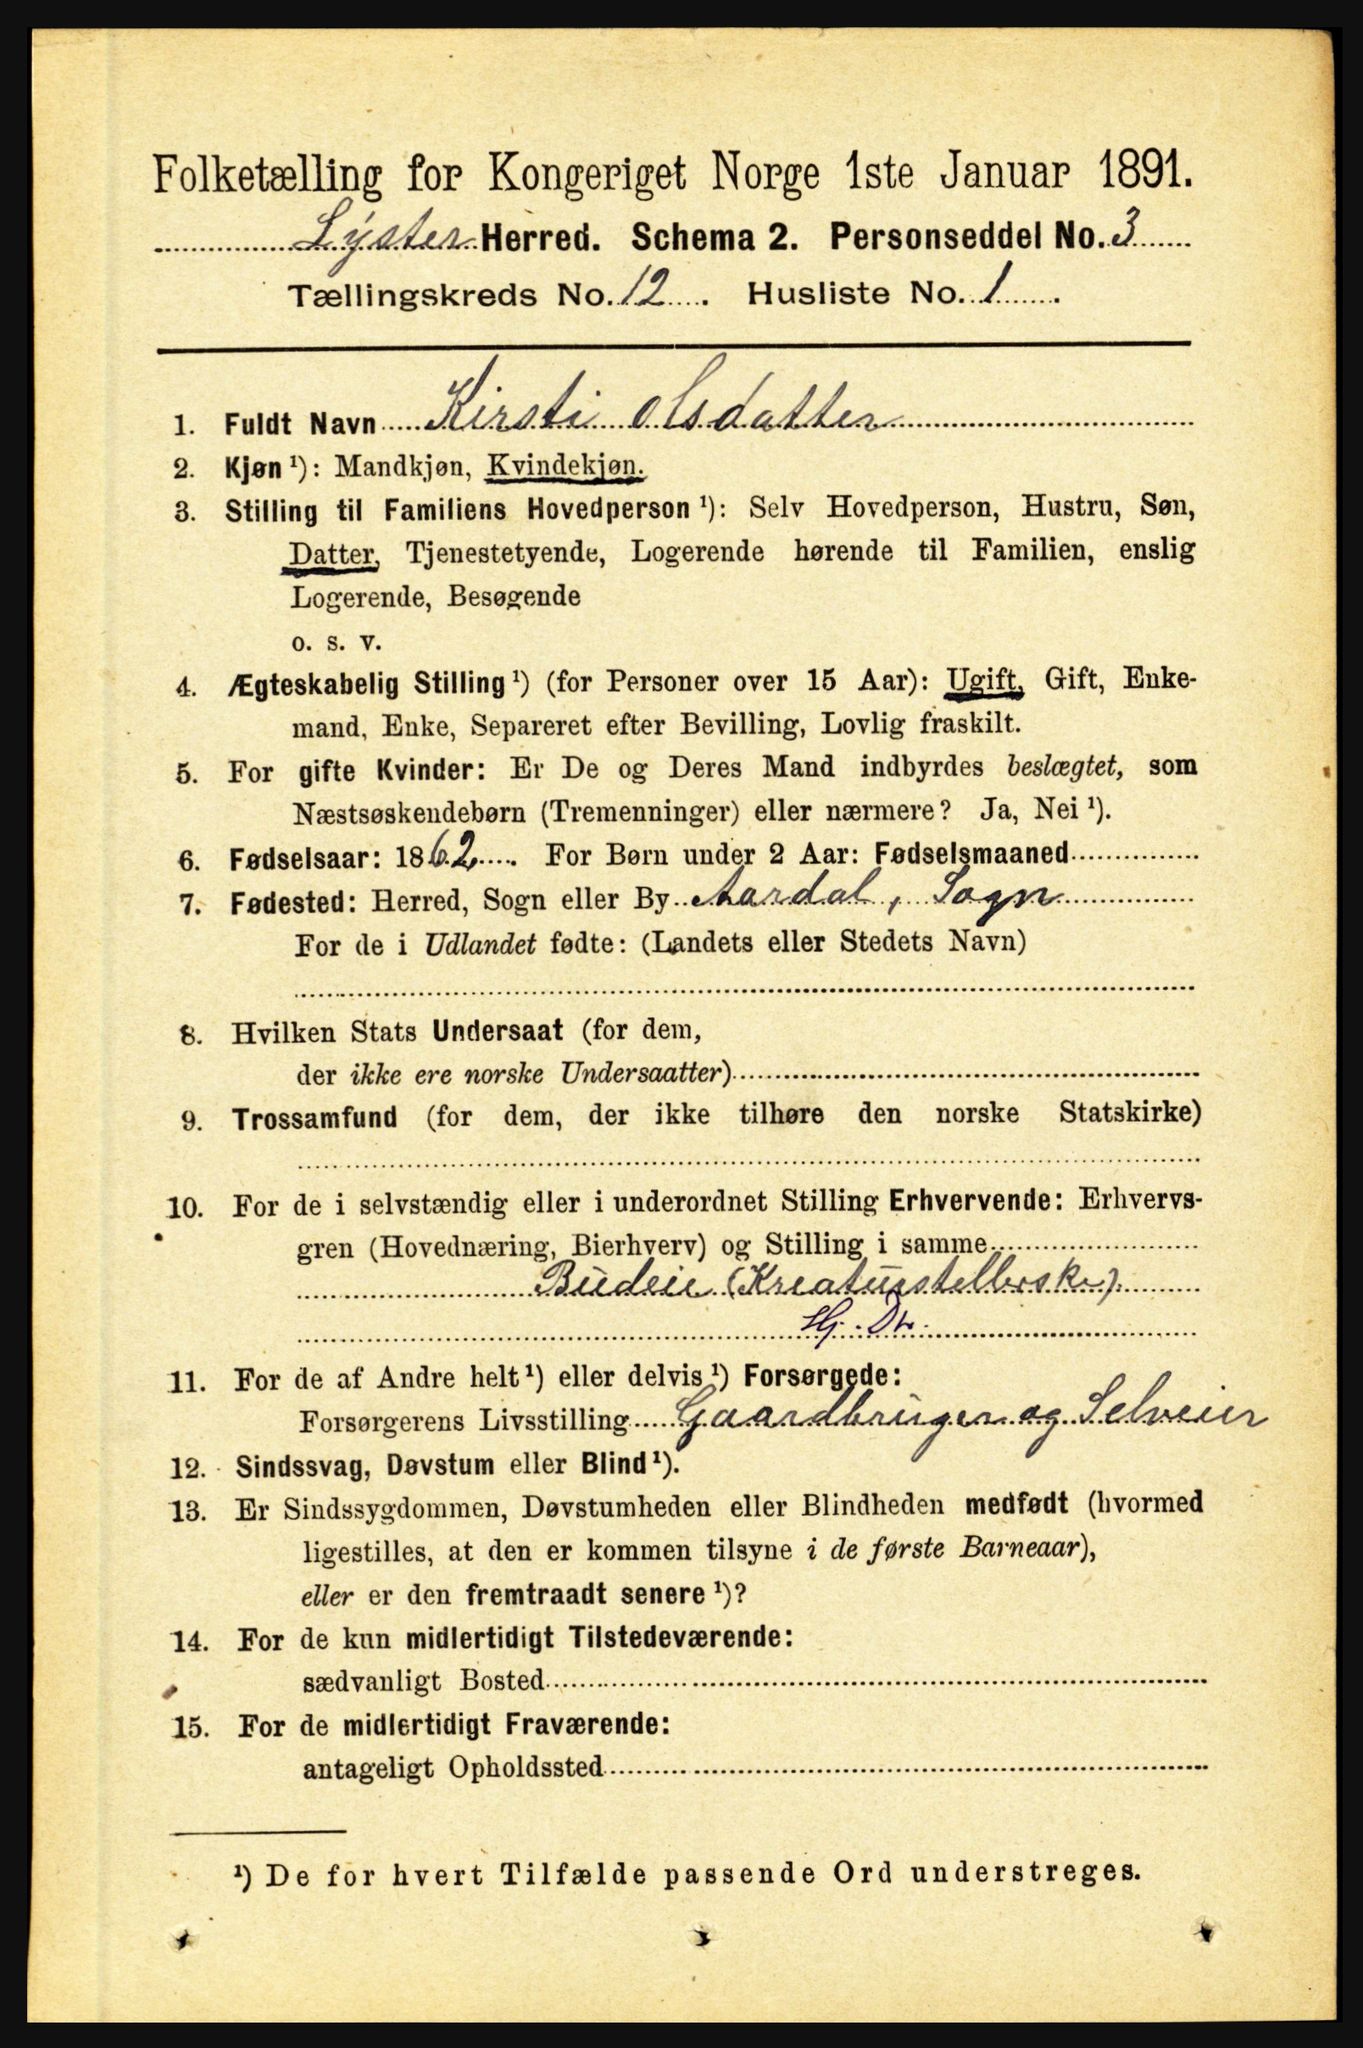 Folketælling for Kongeriget Norge 1ste Januar 1891.
Lyster Herred. Schema 2. Personseddel No. 3
Tællingskreds No. 12. Husliste No. 1.
1. Fuldt Navn Kirsti Olsdatter
2. Kjøn ¹): Mandkjøn, Kvindekjøn.
3. Stilling til Familiens Hovedperson ¹): Selv Hovedperson, Hustru, Søn,
Datter, Tjenestetyende, Logerende hørende til Familien, enslig
Logerende, Besøgende
o. s. v.
4. Ægteskabelig Stilling ¹) (for Personer over 15 Aar): Ugift, Gift, Enke-
mand, Enke, Separeret efter Bevilling, Lovlig fraskilt.
5. For gifte Kvinder: Er De og Deres Mand indbyrdes beslægtet, som
Næstsøskendebørn (Tremenninger) eller nærmere? Ja, Nei ¹).
6. Fødselsaar: 1862. For Børn under 2 Aar: Fødselsmaaned
7. Fødested: Herred, Sogn eller By Aardal, Sogn
For de i Udlandet fødte: (Landets eller Stedets Navn)
8. Hvilken Stats Undersaat (for dem,
der ikke ere norske Undersaatter)
9. Trossamfund (for dem, der ikke tilhøre den norske Statskirke)
10. For de i selvstændig eller i underordnet Stilling Erhvervende: Erhvervs-
gren (Hovednæring, Bierhverv) og Stilling i samme
Budeie (Kreaturstellerske).
Hj. Dt.
11. For de af Andre helt ¹) eller delvis ¹) Forsørgede:
Forsørgerens Livsstilling Gaardbruger og Selveier
12. Sindssvag, Døvstum eller Blind ¹).
13. Er Sindssygdommen, Døvstumheden eller Blindheden medfødt (hvormed
ligestilles, at den er kommen tilsyne i de første Barneaar),
eller er den fremtraadt senere ¹)?
14. For de kun midlertidigt Tilstedeværende:
sædvanligt Bosted
15. For de midlertidigt Fraværende:
antageligt Opholdssted
¹) De for hvert Tilfælde passende Ord understreges.